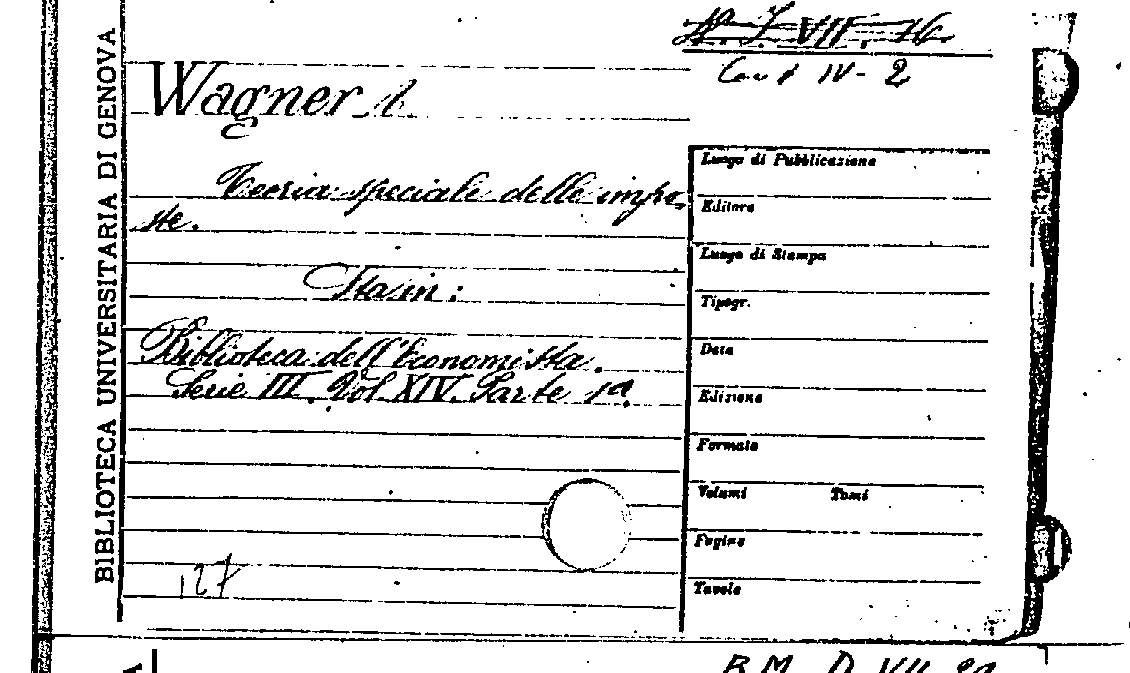 VII. 16.
IV - 2
BIBLIOTECA UNIVERSITARIA DI GENOVA
Wagner
Teoria speciale delle impo-
ste.
Sta in:
Biblioteca dell'Economista.
Serie III. Vol XIV. Parte 1a.
127
Luogo di Pubblicazione
Editore
Luogo di Stampa
Tipogr.
Data
Edizione
Formato
Volumi Tomi
Pagine
Tavole